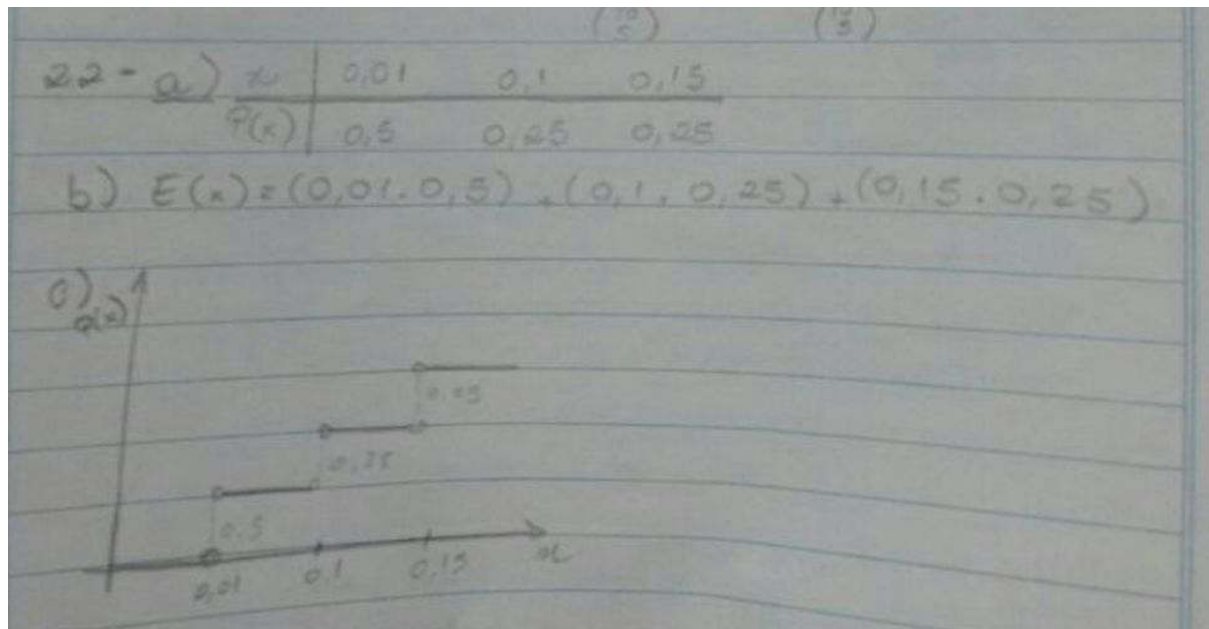 22- a) x 0,01 0,1 0,15
P(x) 0,5 0,25 0,25
b) E(x) = (0,01.0,5) + (0,1.0,25) + (0,15.0,25)
c)
0,25
0,5
0,01 0,1 0,15 x